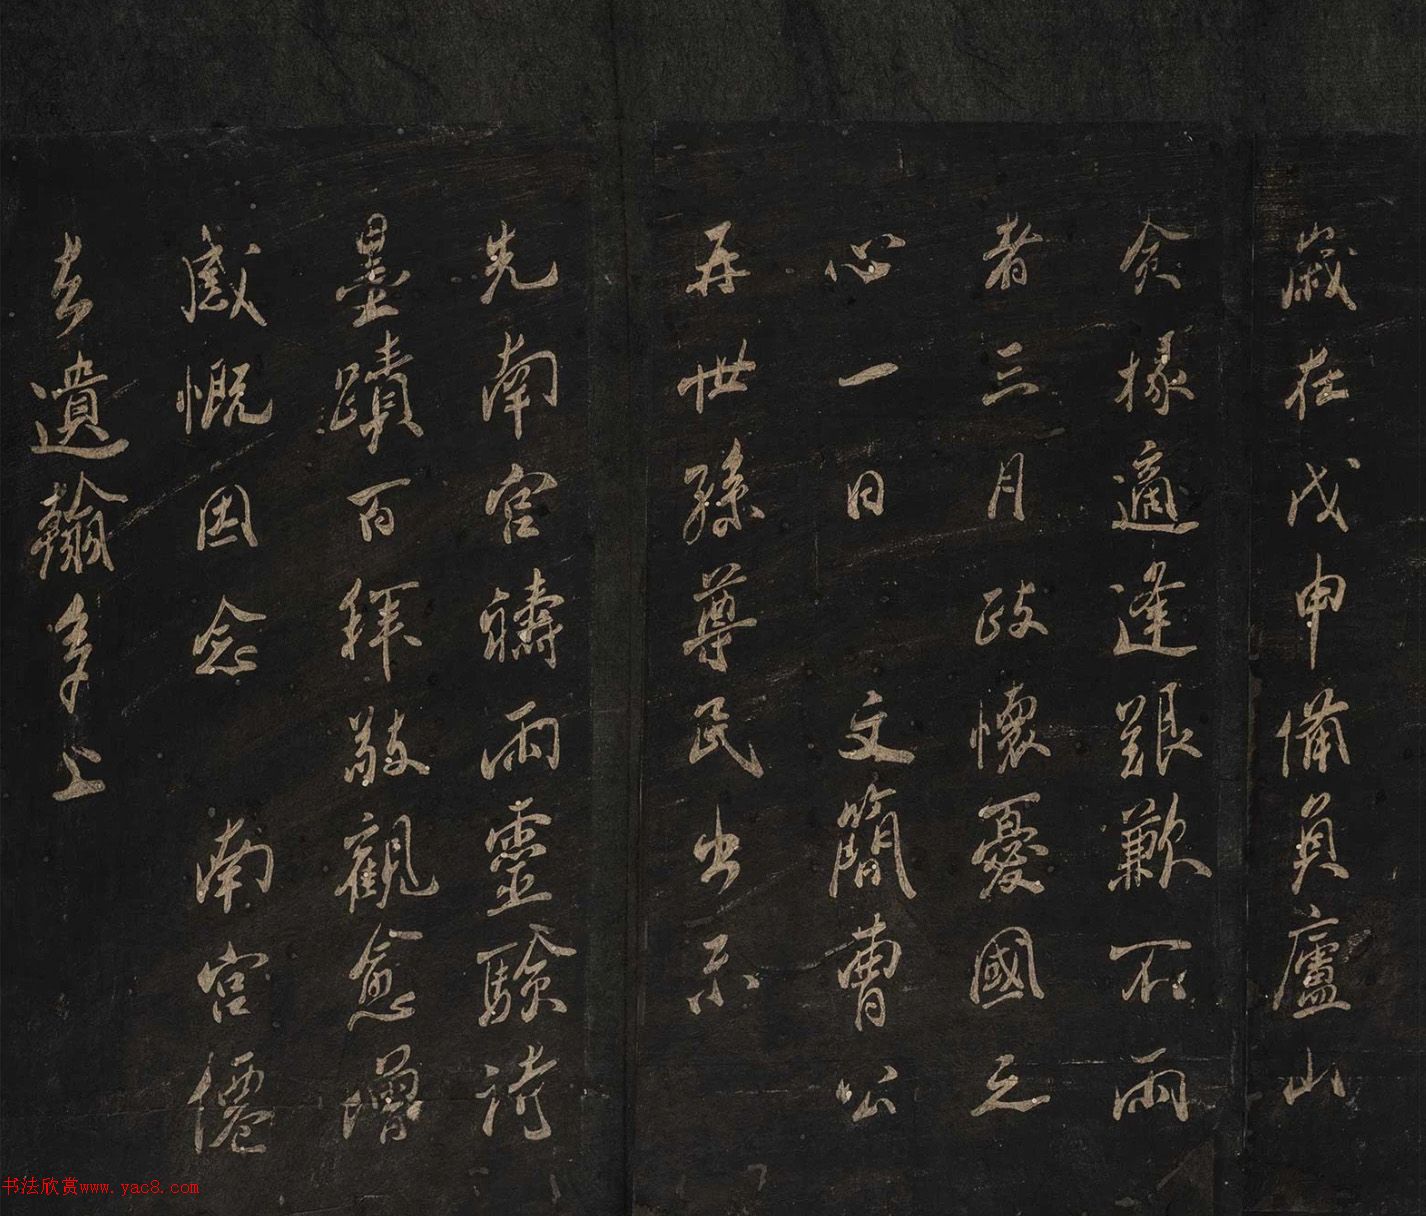 歲在戊申備員廬山
倉掾適逢艱歉不雨
者三月政懷憂國之
心一日文簡曹公
再世孫尊民出示
先南宮禱雨靈驗詩
墨蹟百拜敬觀愈增
感慨因念南宮僊
去遺翰多上
书法欣赏www.yac8.com